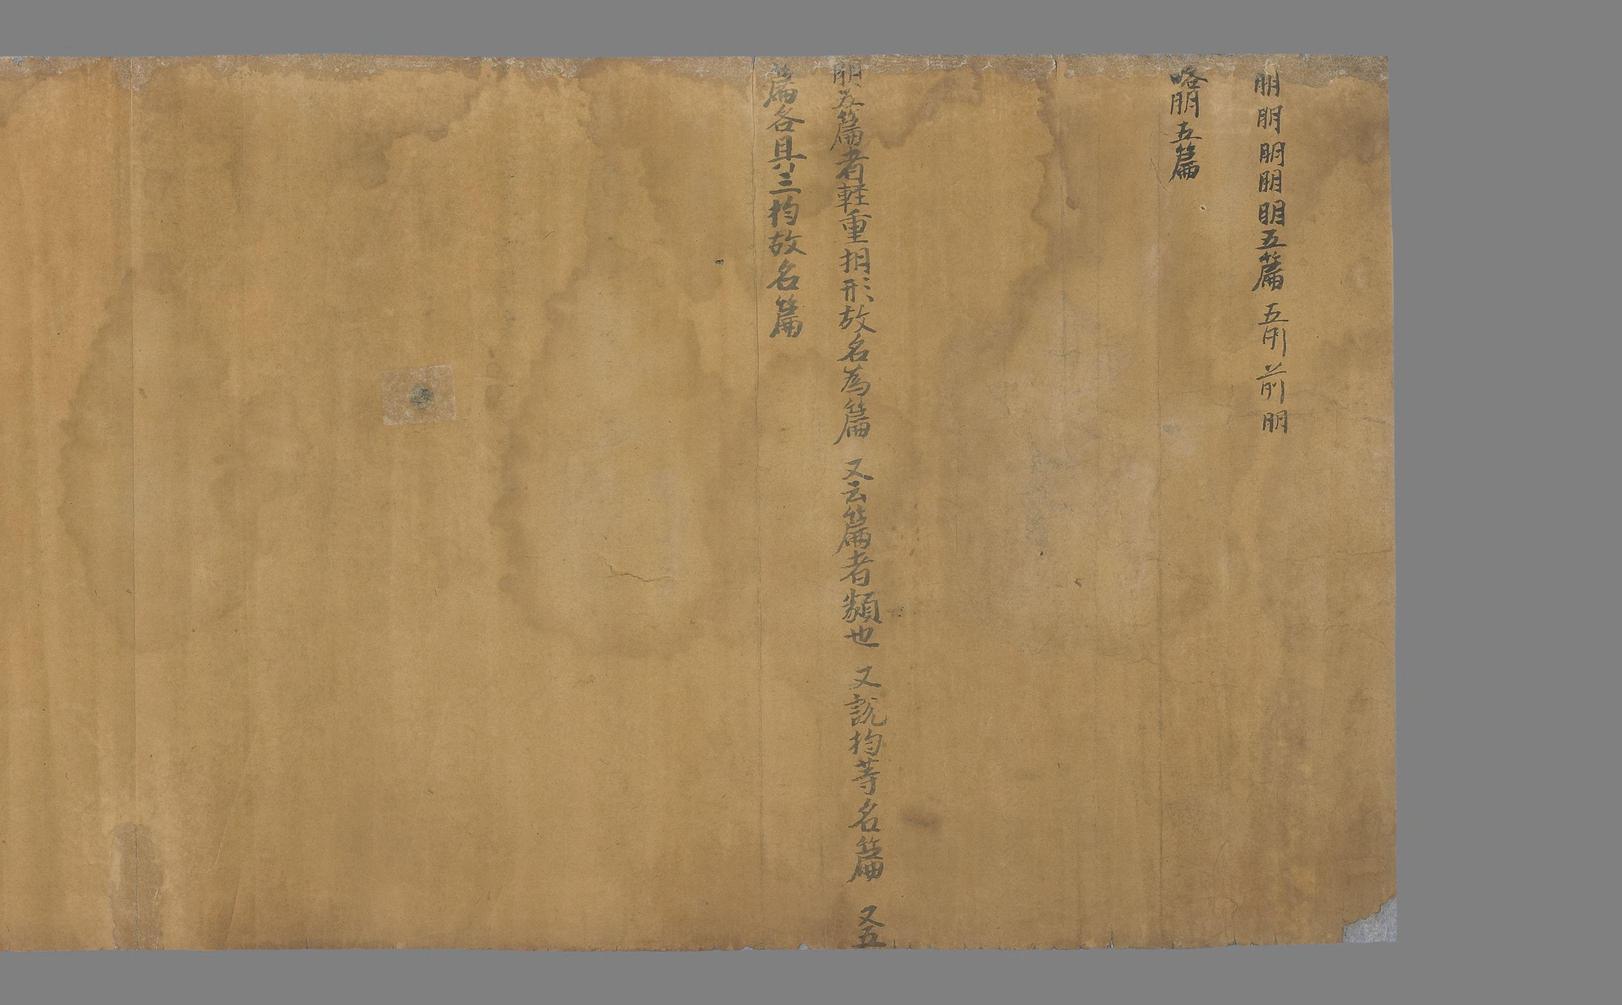 明明明明明五篇五前前明
略明五篇
明五篇者軽重相形故名為篇 又云篇者類也 又説均等名篇 又五
篇各具三均故名篇